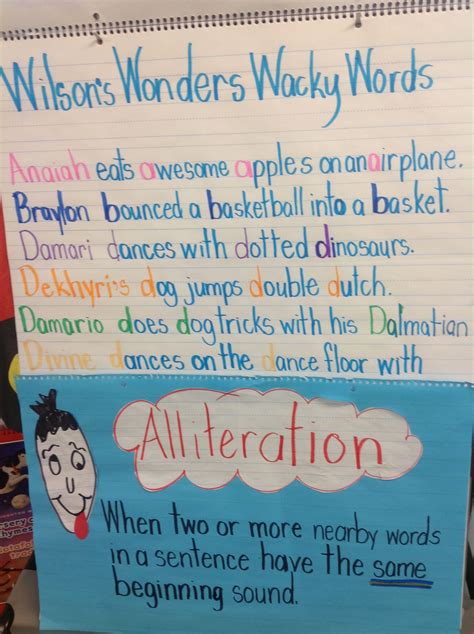 Wilson's Wonders Wacky Words
Anaiah eats awesome apples on an airplane.
Braylon bounced a basketball into a basket.
Damari dances with dotted dinosaurs.
Dekhyri's dog jumps double dutch.
Damario does dog tricks with his Dalmatian
Divine dances on the dance floor with
Alliteration
When two or more nearby words
in a sentence have the same
beginning sound.